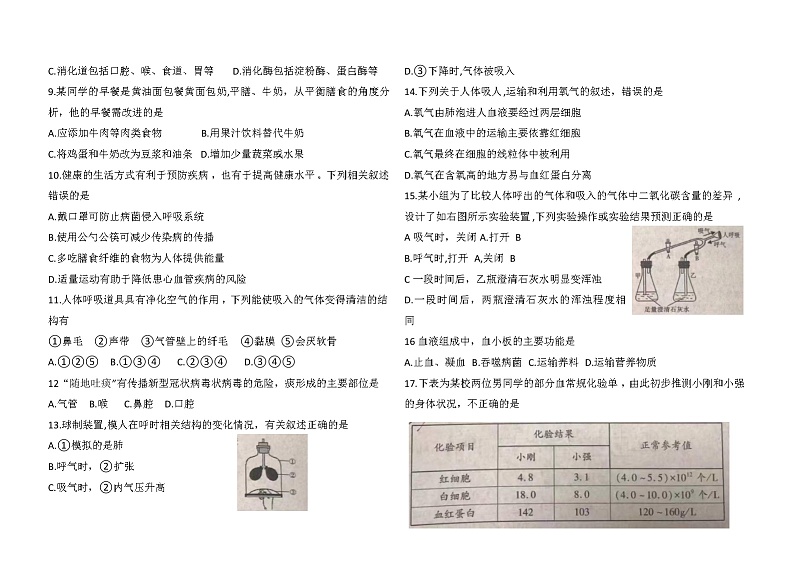 C.消化道包括口腔、喉、食道、胃等 D.消化酶包括淀粉酶、蛋白酶等
9.某同学的早餐是黄油面包餐黄面包奶,平膳、牛奶，从平衡膳食的角度分
析，他的早餐需改进的是
A.应添加牛肉等肉类食物 B.用果汁饮料替代牛奶
C.将鸡蛋和牛奶改为豆浆和油条 D.增加少量蔬菜或水果
10.健康的生活方式有利于预防疾病，也有于提高健康水平。下列相关叙述
错误的是
A.戴口罩可防止病菌侵入呼吸系统
B.使用公勺公筷可减少传染病的传播
C.多吃膳食纤维的食物为人体提供能量
D.适量运动有助于降低患心血管疾病的风险
11.人体呼吸道具具有净化空气的作用，下列能使吸入的气体变得清洁的结
构有
①鼻毛 ②声带 ③气管壁上的纤毛 ④黏膜 ⑤会厌软骨
A.①②⑤ B.①③④ C.②③④ D.③④⑤
12“随地吐痰”有传播新型冠状病毒状病毒的危险，痰形成的主要部位是
A.气管 B.喉 C.鼻腔 D.口腔
13.球制装置,模人在呼时相关结构的变化情况，有关叙述正确的是
A.①模拟的是肺
B.呼气时，②扩张
C.吸气时，②内气压升高
①
②
③
D.③下降时,气体被吸入
14.下列关于人体吸人,运输和利用氧气的叙述，错误的是
A.氧气由肺泡进人血液要经过两层细胞
B.氧气在血液中的运输主要依靠红细胞
C.氧气最终在细胞的线粒体中被利用
D.氧气在含氧高的地方易与血红蛋白分离
15.某小组为了比较人体呼出的气体和吸入的气体中二氧化碳含量的差异，
设计了如右图所示实验装置,下列实验操作或实验结果预测正确的是
A 吸气时，关闭 A.打开 B
B.呼气时,打开 A,关闭 B
C 一段时间后，乙瓶澄清石灰水明显变浑浊
D.一段时间后，两瓶澄清石灰水的浑浊程度相
同
吸气
人呼吸
呼气
A
B
甲
乙
足量澄清石灰水
16 血液组成中，血小板的主要功能是
A.止血、凝血 B.吞噬病菌 C.运输养料 D.运输营养物质
17.下表为某校两位男同学的部分血常规化验单，由此初步推测小刚和小强
的身体状况，不正确的是
化验项目 化验结果 正常参考值
小刚 小强
红细胞 4.8 3.1 (4.0~5.5)×10¹² 个/L
白细胞 18.0 8.0 (4.0~10.0)×10⁹ 个/L
血红蛋白 142 103 120~160g/L